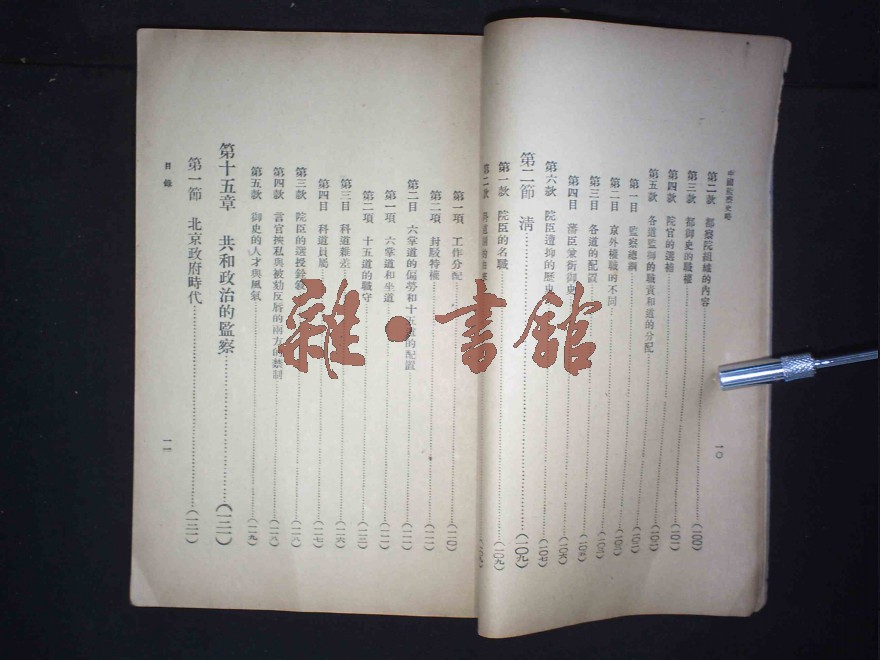 中國監察史略
第二款 都察院組織的內容……(一〇〇)
第三款 都御史的職權……(一〇一)
第四款 院官的選補……(一〇二)
第五款 各道監御的職責和道的分配
第一目 監察總綱
第二目 京外權職的不同
第三目 各道的配置
第四目 藩臣兼銜御史
第六款 院臣遭抑的歷史……(一〇七)
第二節 清……(一〇九)
第一款 院臣的名職……(一〇九)
第二款 科道
一〇
第一項 工作分配……(一一〇)
第二項 封駁特權……(一一一)
第二目 六掌道的偏勞和十五道的配置……(一一二)
第一項 六掌道和坐道……(一一二)
第二項 十五道的職守
第三目 科道雜差……(一一六)
第四目 科道員屬……(一一七)
第三款 院臣的選授
第四款 言官挾私與被劾反唇的兩方的禁制……(一一八)
第五款 御史的人才與風氣……(一一九)
第十五章 共和政治的監察……(一二一)
第一節 北京政府時代……(一二一)
目錄
一一
雜·書館